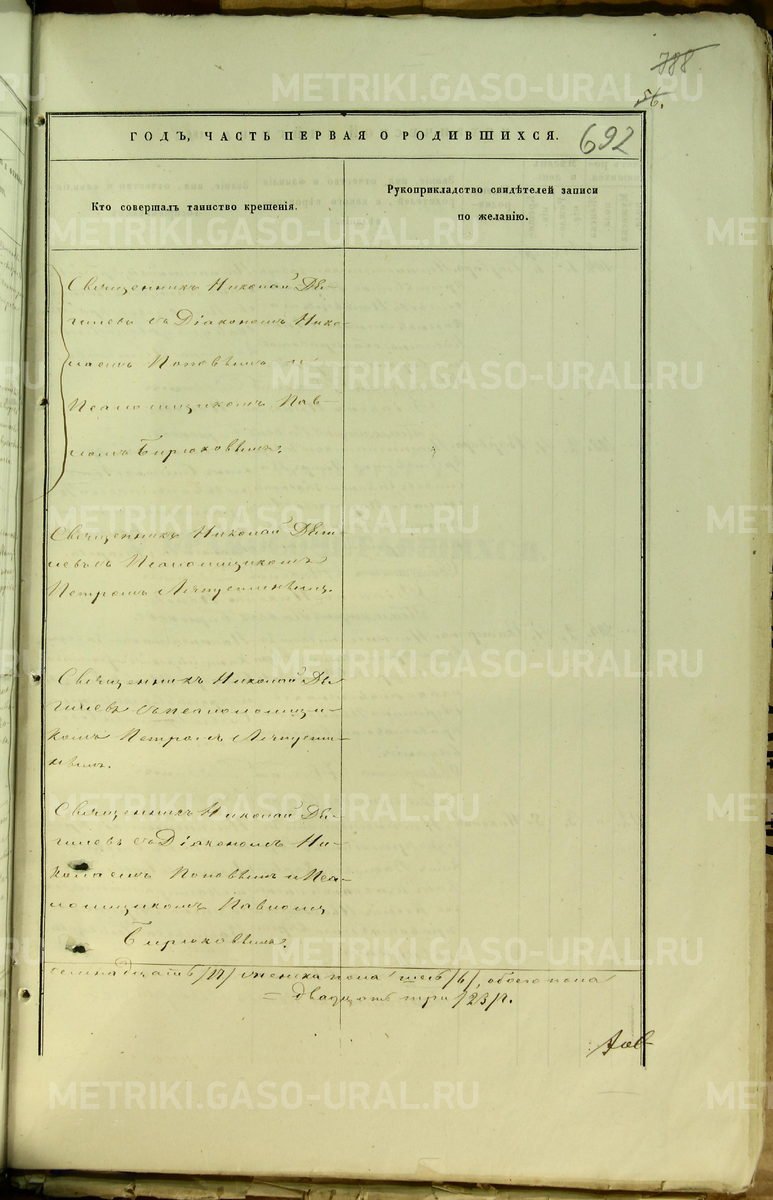 788
56.
692
ГОДЪ, ЧАСТЬ ПЕРВАЯ О РОДИВШИХСЯ.
Кто совершалъ таинство крещенія.
Рукоприкладство свидѣтелей записи
по желанію.
Священникъ Николай Дя-
гилевъ съ Діакономъ Нико-
лаемъ Поповымъ и
Псаломщикомъ Пав-
ломъ Бирюковымъ.
Священникъ Николай
съ Псаломщикомъ
Петромъ
Священникъ Николай Дя-
гилевъ съ псаломщи-
комъ Петромъ
Священникъ Николай Дя-
гилевъ съ Діакономъ Ни-
колаемъ Поповымъ и Пса-
ломщикомъ Павломъ
Бирюковымъ.
семнадцать /17/ женска пола шесть /6/, обоего пола
= двадцать три /23/.
METRIKI.GASO-URAL.RU